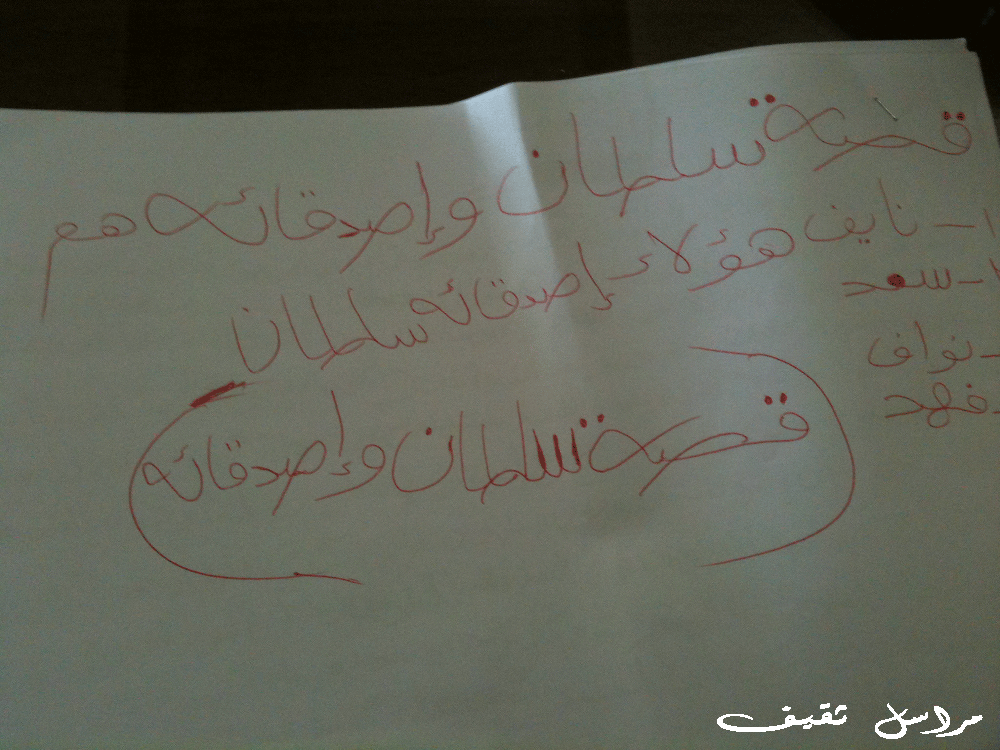 قصة سلطان وإصدقائه هم
١- نايف هؤلاء إصدقائه سلطان
٢- سعد
- نواف
- فهد
قصة سلطان وإصدقائه
مراسل ثقيف